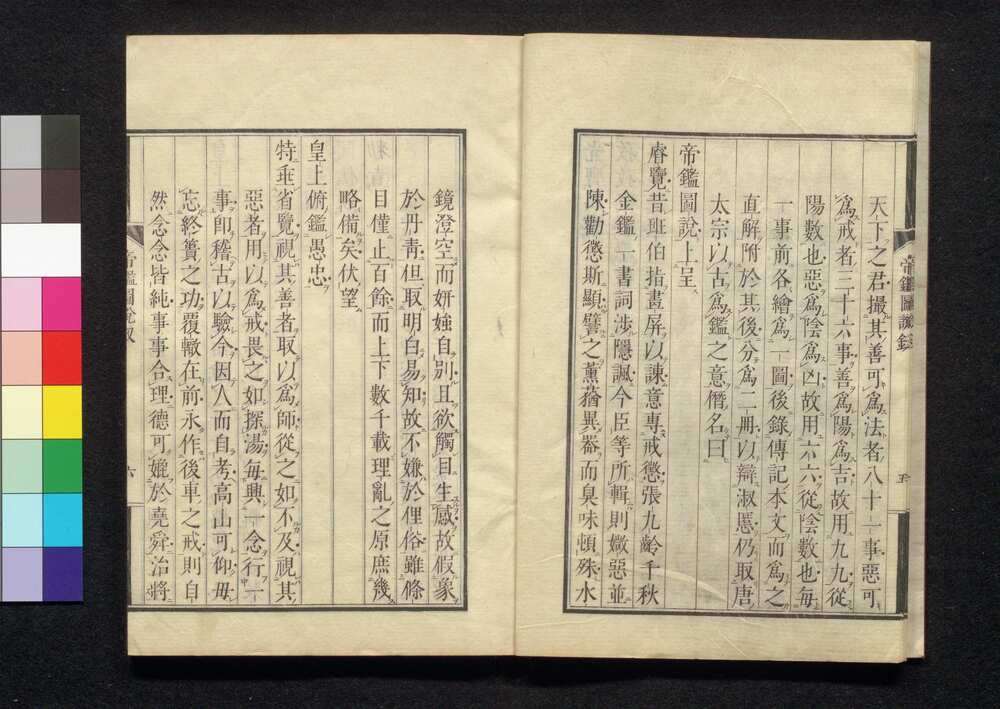 天下之君撮其善可爲法者八十一事惡可
爲戒者三十六事善爲陽爲吉故用九九從
陽數也惡爲陰爲凶故用六六從陰數也每
一事前各繪爲一圖後錄傳記本文而爲之
直解附於其後分爲二册以辯淑慝仍取唐
太宗以古爲鑑之意僭名曰
帝鑑圖說上呈
睿覽昔班伯指畫屏以諫意專戒懲張九齡千秋
金鑑一書詞涉隱諷今臣等所輯則媺惡並
陳勸懲斯顯譬之薰蕕異器而臭味頓殊水
鏡澄空而妍媸自別且欲觸目生感故假象
於丹靑但取明白易知故不嫌於俚俗雖條
目僅止百餘而上下數千載理亂之原庶幾
略備矣伏望
皇上俯鑑愚忠
特垂省覽視其善者取以爲師從之如不及視其
惡者用以爲戒畏之如探湯每興一念行一
事卽稽古以驗今因人而自考高山可仰毋
忘終簣之功覆轍在前永作後車之戒則自
然念念皆純事事合理德可媲於堯舜治將
帝鑑圖說敍
五
帝鑑圖說敍
六